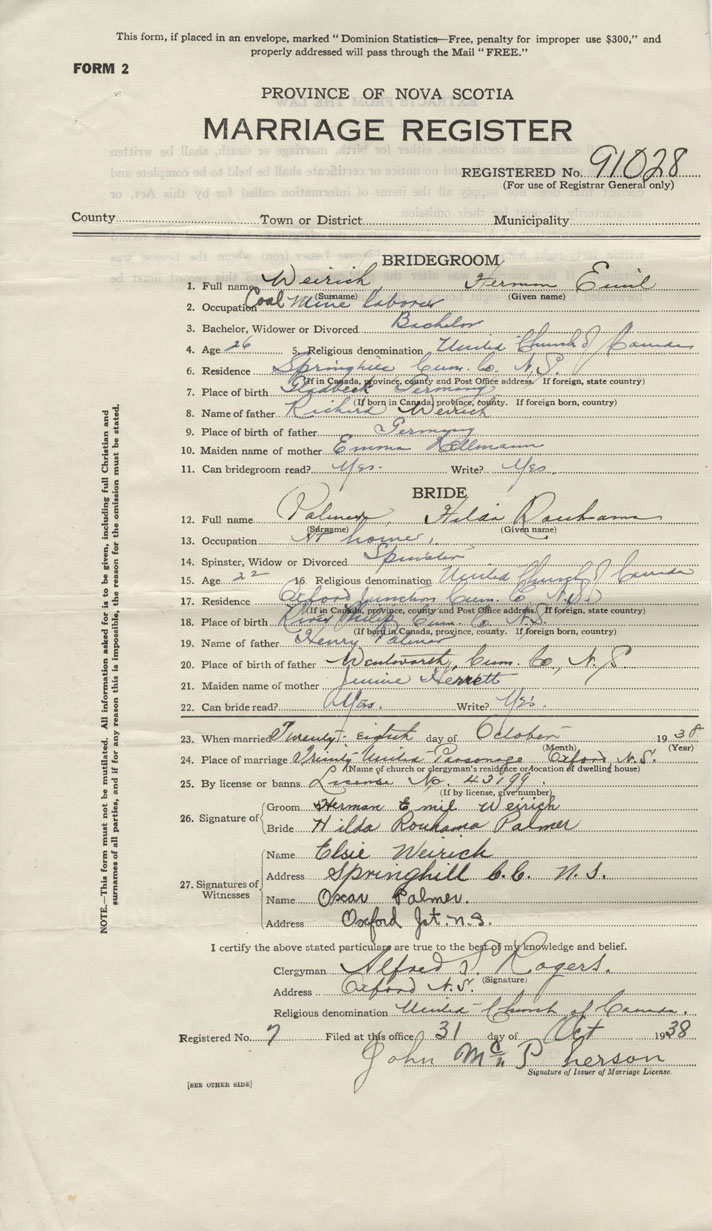 This form, if placed in an envelope, marked “ Dominion Statistics—Free, penalty for improper use $300,” and
properly addressed will pass through the Mail “ FREE.”
FORM 2
PROVINCE OF NOVA SCOTIA
MARRIAGE REGISTER
REGISTERED No. 91028
(For use of Registrar General only)
County Town or District Municipality
BRIDEGROOM
1. Full name Weirich Herman Emil
(Surname) (Given name)
2. Occupation Coal Mine laborer
3. Bachelor, Widower or Divorced Bachelor
4. Age 26 5. Religious denomination United Church of Canada
6. Residence Springhill Cum. Co. N.S.
(If in Canada, province, county and Post Office address. If foreign, state country)
7. Place of birth Gladbeck Germany
(If born in Canada, province, county. If foreign born, country)
8. Name of father Richard Weirich
9. Place of birth of father Germany
10. Maiden name of mother Emma
11. Can bridegroom read? Yes. Write? Yes.
BRIDE
12. Full name Palmer, Hilda Rouhama
(Surname) (Given name)
13. Occupation At home.
14. Spinster, Widow or Divorced Spinster
15. Age 22 16. Religious denomination United Church of Canada
17. Residence Oxford Junction Cum. Co N.S.
(If in Canada, province, county and Post Office address. If foreign, state country)
18. Place of birth River Philip Cum. Co. N.S.
(If born in Canada, province, county. If foreign born, country)
19. Name of father Henry Palmer
20. Place of birth of father Wentworth, Cum. Co, N.S
21. Maiden name of mother Jennie Herrett
22. Can bride read? Yes. Write? Yes.
23. When married Twenty-eighth day of October 1938
(Month) (Year)
24. Place of marriage Trinity United Parsonage Oxford N.S.
(Name of church or clergyman's residence or location of dwelling house)
25. By license or banns License No. 43199
(If by license, give number)
26. Signature of
Groom Herman Emil Weirich
Bride Hilda Rouhama Palmer
27. Signatures of Witnesses
Name Elsie Weirich
Address Springhill C.C. N.S.
Name Oscar Palmer.
Address Oxford Jct. N.S.
I certify the above stated particulars are true to the best of my knowledge and belief.
Clergyman Alfred J. Rogers.
(Signature)
Address Oxford N.S.
Religious denomination United Church of Canada.
Registered No. 7 Filed at this office 31 day of Oct 1938
John McPherson
Signature of Issuer of Marriage License
[SEE OTHER SIDE]
NOTE.—This form must not be mutilated. All information asked for is to be given, including full Christian and
surnames of all parties, and if for any reason this is impossible, the reason for the omission must be stated.